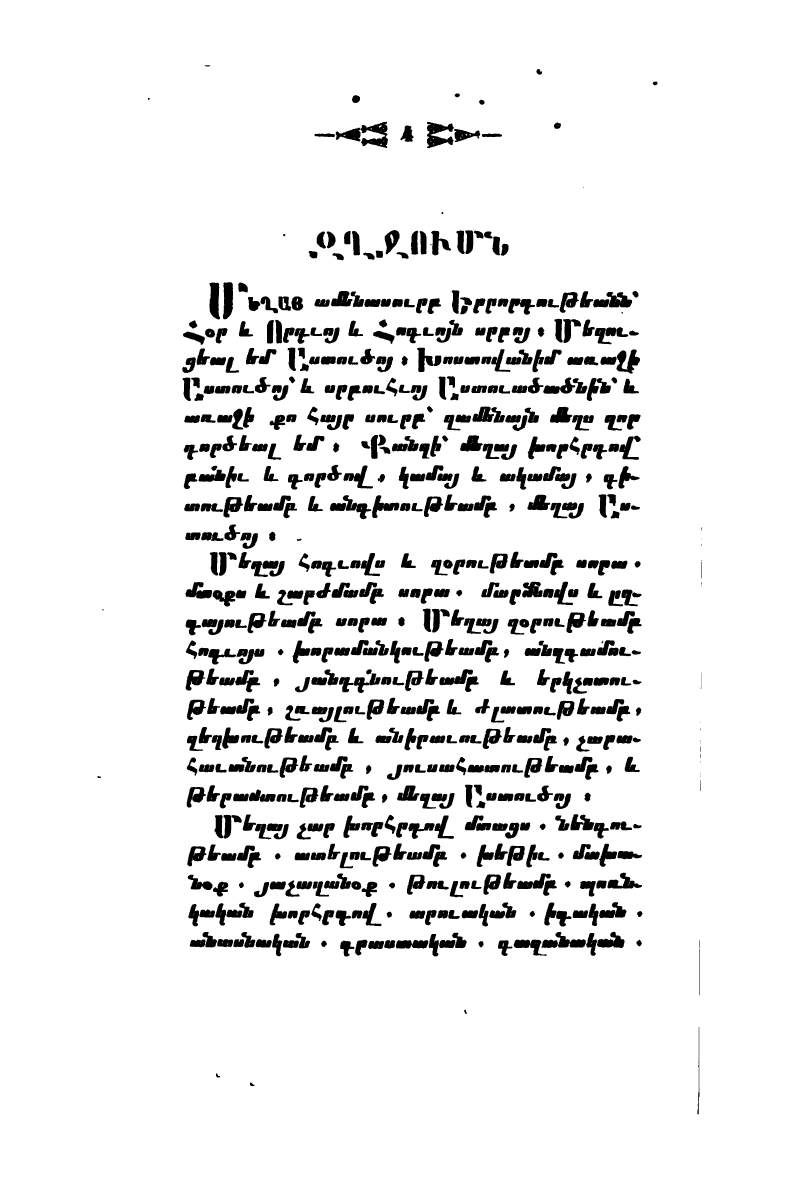 4
ԶՂՋՈՒՄՆ
Մեղայ ամենասուրբ Երրորդութեանն՝
Հօր և Որդւոյ և Հոգւոյն սրբոյ ։ Մեղու-
ցեալ եմ Աստուծոյ ։ Խոստովանիմ առաջի
Աստուծոյ՝ և սրբուհւոյ Աստուածածնին՝ և
առաջի քո հայր սուրբ՝ զամենայն մեղս զոր
գործեալ եմ ։ Քանզի՝ մեղայ խորհրդով՝
բանիւ և գործով , կամայ և ակամայ , գի-
տութեամբ և անգիտութեամբ , մեղայ Աս-
տուծոյ ։
Մեղայ հոգւովս և զօրութեամբ սորա .
մտօքս և շարժմամբ սորա . մարմնովս և ըզ-
գայութեամբ սորա ։ Մեղայ զօրութեամբ
հոգւոյս . խորամանկութեամբ , անզգամու-
թեամբ , յանդգնութեամբ և երկչոտու-
թեամբ , շռայլութեամբ և ժլատութեամբ ,
զեղխութեամբ և անիրաւութեամբ , չարա-
հաւանութեամբ , յուսահատութեամբ , և
թերահաւատութեամբ , մեղայ Աստուծոյ ։
Մեղայ չար խորհրդով մտացս . նենգու-
թեամբ . ատելութեամբ . խեթիւ . մախա-
նօք . յաչաղանօք . թուլութեամբ . պոռն-
կական խորհրդով . արուական . իգական .
անասնական . գրաստական . գազանական .